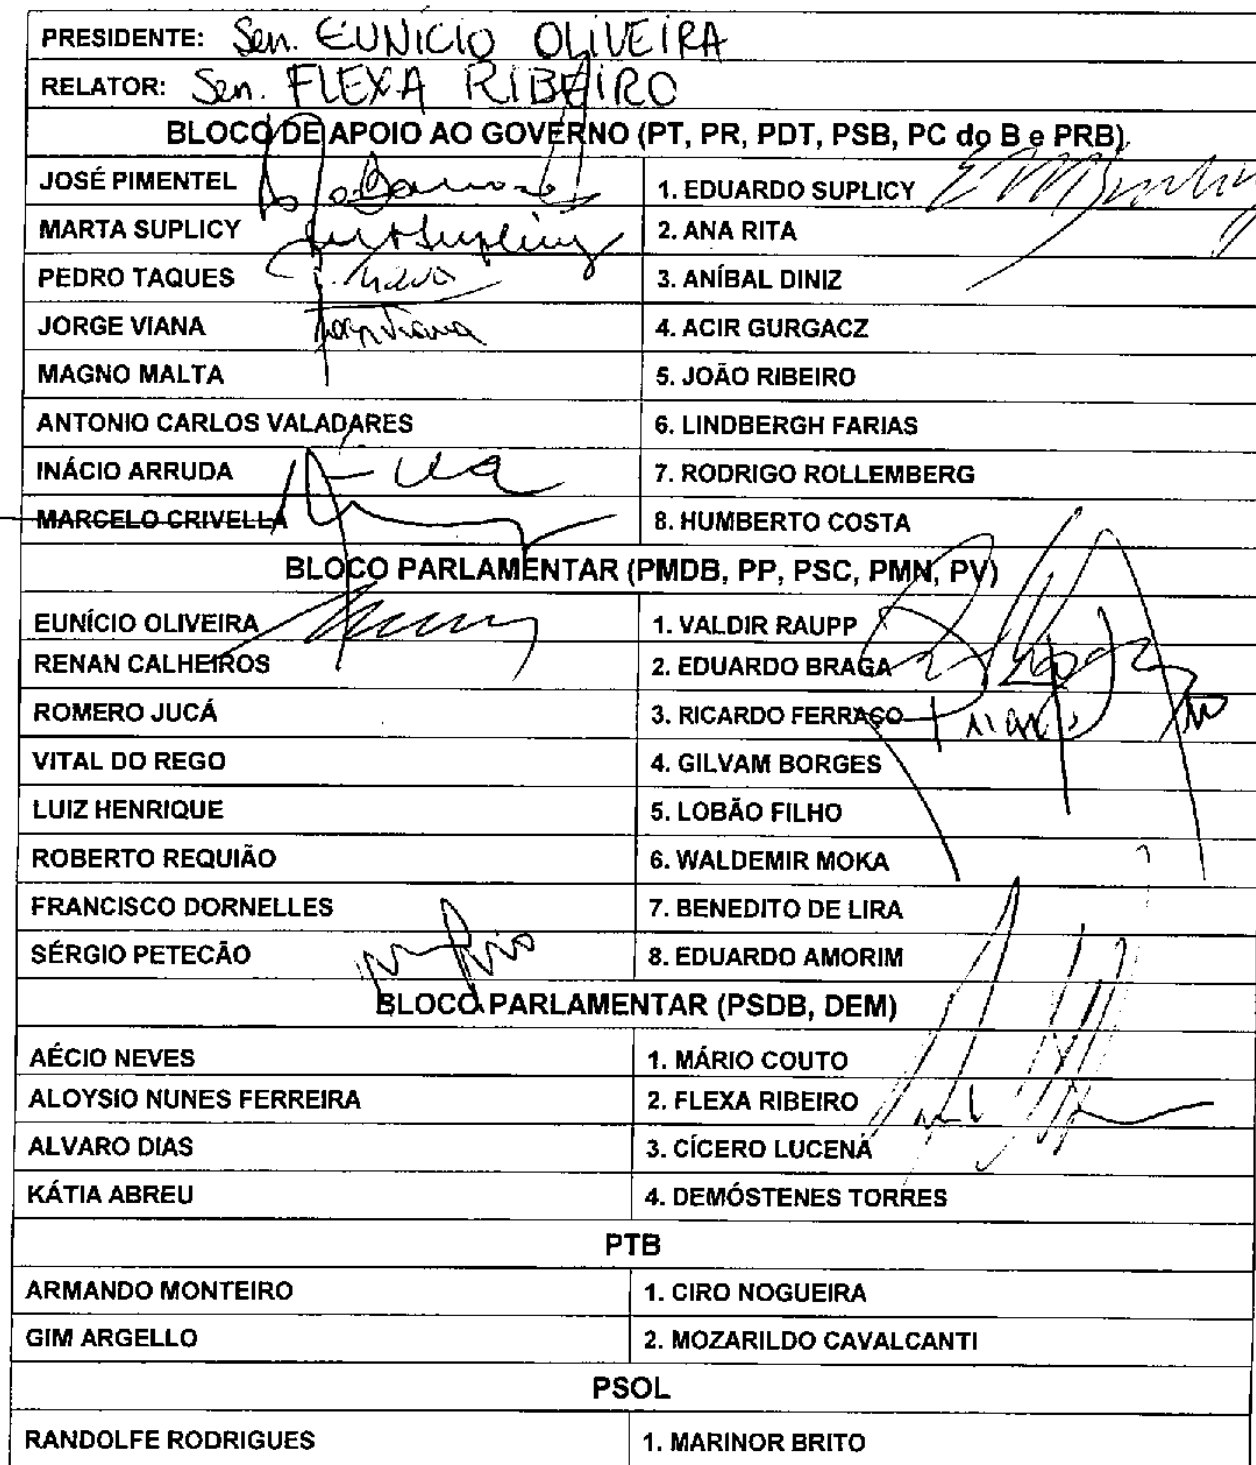 PRESIDENTE: Sen. EUNICIO OLIVEIRA
RELATOR: Sen. FLEXA RIBEIRO
BLOCO DE APOIO AO GOVERNO (PT, PR, PDT, PSB, PC do B e PRB)
JOSÉ PIMENTEL 1. EDUARDO SUPLICY
MARTA SUPLICY 2. ANA RITA
PEDRO TAQUES 3. ANÍBAL DINIZ
JORGE VIANA 4. ACIR GURGACZ
MAGNO MALTA 5. JOÃO RIBEIRO
ANTONIO CARLOS VALADARES 6. LINDBERGH FARIAS
INÁCIO ARRUDA 7. RODRIGO ROLLEMBERG
MARCELO CRIVELLA 8. HUMBERTO COSTA
BLOCO PARLAMENTAR (PMDB, PP, PSC, PMN, PV)
EUNÍCIO OLIVEIRA 1. VALDIR RAUPP
RENAN CALHEIROS 2. EDUARDO BRAGA
ROMERO JUCÁ 3. RICARDO FERRAÇO
VITAL DO REGO 4. GILVAM BORGES
LUIZ HENRIQUE 5. LOBÃO FILHO
ROBERTO REQUIÃO 6. WALDEMIR MOKA
FRANCISCO DORNELLES 7. BENEDITO DE LIRA
SÉRGIO PETECÃO 8. EDUARDO AMORIM
BLOCO PARLAMENTAR (PSDB, DEM)
AÉCIO NEVES 1. MÁRIO COUTO
ALOYSIO NUNES FERREIRA 2. FLEXA RIBEIRO
ALVARO DIAS 3. CÍCERO LUCENA
KÁTIA ABREU 4. DEMÓSTENES TORRES
PTB
ARMANDO MONTEIRO 1. CIRO NOGUEIRA
GIM ARGELLO 2. MOZARILDO CAVALCANTI
PSOL
RANDOLFE RODRIGUES 1. MARINOR BRITO